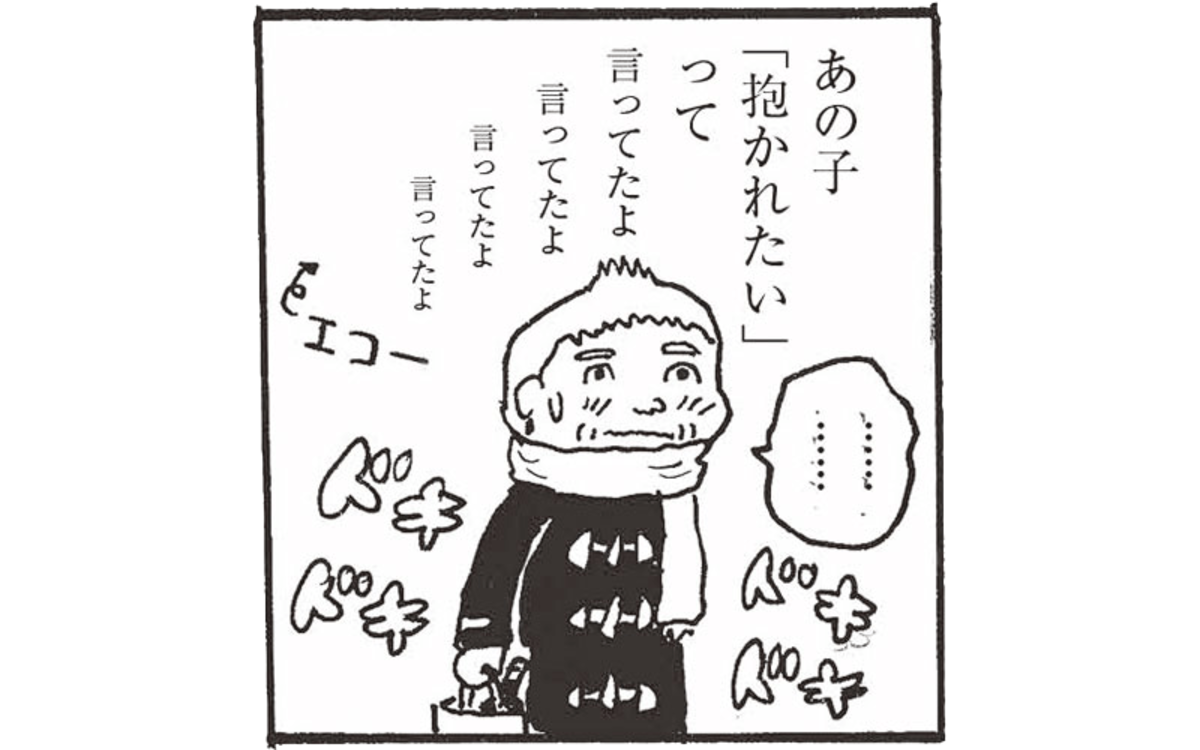 あの子
「抱かれたい」
って
言ってたよ
言ってたよ
言ってたよ
言ってたよ
エコー
……
……
ドキ
ドキ
ドキ
ドキ